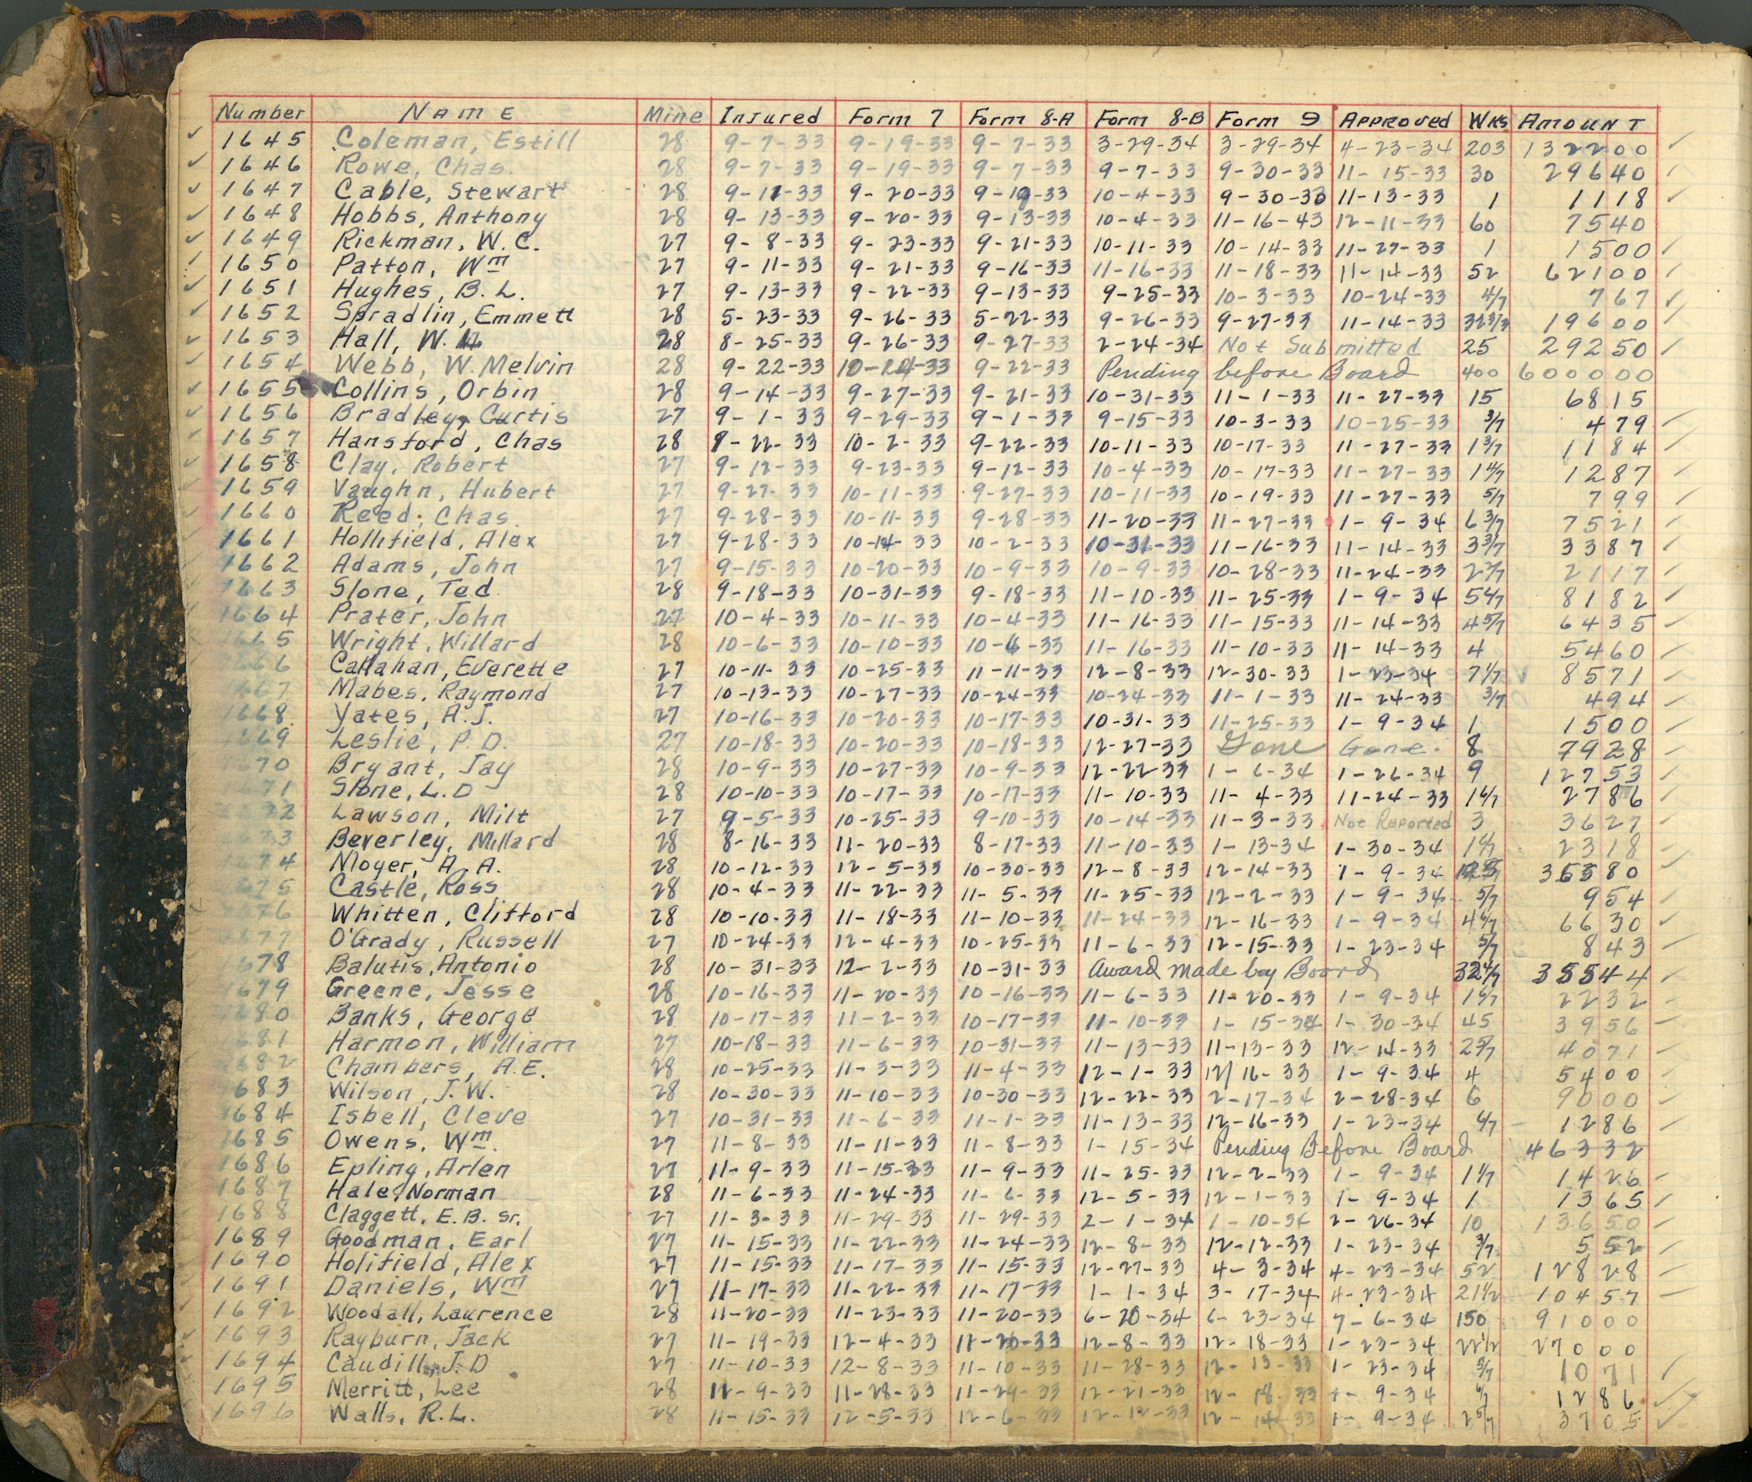 Number NAME Mine Injured Form 7 Form 8-A Form 8-B Form 9 Approved Wks Amount
✓ 1645 Coleman, Estill 28 9-7-33 9-19-33 9-7-33 3-29-34 3-29-34 4-23-34 203 132200 ✓
✓ 1646 Rowe, Chas. 28 9-7-33 9-19-33 9-7-33 9-7-33 9-30-33 11-15-33 30 29640 ✓
✓ 1647 Cable, Stewart 28 9-11-33 9-20-33 9-19-33 10-4-33 9-30-33 11-13-33 1 1118 ✓
✓ 1648 Hobbs, Anthony 28 9-13-33 9-20-33 9-13-33 10-4-33 11-16-43 12-11-33 60 7540
✓ 1649 Rickman, W.C. 27 9-8-33 9-23-33 9-21-33 10-11-33 10-14-33 11-27-33 1 1500 ✓
✓ 1650 Patton, Wm 27 9-11-33 9-21-33 9-16-33 11-16-33 11-18-33 11-14-33 52 62100 ✓
✓ 1651 Hughes, B.L. 27 9-13-33 9-22-33 9-13-33 9-25-33 10-3-33 10-24-33 4/7 767 ✓
✓ 1652 Spradlin, Emmett 28 5-23-33 9-26-33 5-22-33 9-26-33 9-27-33 11-14-33 19600 ✓
✓ 1653 Hall, W. 28 8-25-33 9-26-33 9-27-33 2-24-34 Not Submitted 25 29250 ✓
✓ 1654 Webb, W. Melvin 28 9-22-33 10-24-33 9-22-33 Pending before Board 400 600000
✓ 1655 Collins, Orbin 28 9-14-33 9-27-33 9-21-33 10-31-33 11-1-33 11-27-33 15 6815
✓ 1656 Bradley, Curtis 27 9-1-33 9-29-33 9-1-33 9-15-33 10-3-33 10-25-33 3/7 479 ✓
✓ 1657 Hansford, Chas 28 9-22-33 10-2-33 9-22-33 10-11-33 10-17-33 11-27-33 1 3/7 1184 ✓
✓ 1658 Clay, Robert 27 9-12-33 9-23-33 9-12-33 10-4-33 10-17-33 11-27-33 1 4/7 1287 ✓
✓ 1659 Vaughn, Hubert 27 9-27-33 10-11-33 9-27-33 10-11-33 10-19-33 11-27-33 5/7 799 ✓
1660 Reed, Chas. 27 9-28-33 10-11-33 9-28-33 11-20-33 11-27-33 1-9-34 6 3/7 7521 ✓
1661 Hollifield, Alex 27 9-28-33 10-14-33 10-2-33 10-31-33 11-16-33 11-14-33 3 3/7 3387 ✓
1662 Adams, John 27 9-15-33 10-20-33 10-9-33 10-9-33 10-28-33 11-24-33 2117 ✓
1663 Slone, Ted 28 9-18-33 10-31-33 9-18-33 11-10-33 11-25-33 1-9-34 5 4/7 8182 ✓
1664 Prater, John 27 10-4-33 10-11-33 10-4-33 11-16-33 11-15-33 11-14-33 4 5/7 6435 ✓
1665 Wright, Willard 28 10-6-33 10-10-33 10-6-33 11-16-33 11-10-33 11-14-33 4 5460 ✓
1666 Callahan, Everette 27 10-11-33 10-25-33 11-11-33 12-8-33 12-30-33 1-23-34 7 1/7 8571 ✓
1667 Mabes, Raymond 27 10-13-33 10-27-33 10-24-33 10-24-33 11-1-33 11-24-33 3/7 494 ✓
1668 Yates, A.J. 27 10-16-33 10-20-33 10-17-33 10-31-33 11-25-33 1-9-34 1 1500 ✓
1669 Leslie, P.D. 27 10-18-33 10-20-33 10-18-33 12-27-33 Gone Gone. 8 7928 ✓
1670 Bryant, Jay 28 10-9-33 10-27-33 10-9-33 12-22-33 1-6-34 1-26-34 9 12753 ✓
1671 Slone, L.D 28 10-10-33 10-17-33 10-17-33 11-10-33 11-4-33 11-24-33 1 6/7 2786 ✓
1672 Lawson, Milt 27 9-5-33 10-25-33 9-10-33 10-14-33 11-3-33 Not Reported 3 3627 ✓
1673 Beverley, Millard 28 8-16-33 11-20-33 8-17-33 11-10-33 1-13-34 1-30-34 2318 ✓
1674 Moyer, A.A. 28 10-12-33 12-5-33 10-30-33 12-8-33 12-14-33 1-9-34 36580 ✓
1675 Castle, Ross 28 10-4-33 11-22-33 11-5-33 11-25-33 12-2-33 1-9-34 5/7 954 ✓
1676 Whitten, Clifford 28 10-10-33 11-18-33 11-10-33 11-24-33 12-16-33 1-9-34 4 6/7 6630 ✓
1677 O'Grady, Russell 27 10-24-33 12-4-33 10-25-33 11-6-33 12-15-33 1-23-34 5/7 843 ✓
1678 Balutis, Antonio 28 10-31-33 12-2-33 10-31-33 Award made by Board 32 4/7 35544 ✓
1679 Greene, Jesse 28 10-16-33 11-20-33 10-16-33 11-6-33 11-20-33 1-9-34 2232 ✓
1680 Banks, George 28 10-17-33 11-2-33 10-17-33 11-10-33 1-15-34 1-30-34 45 3956 ✓
1681 Harmon, William 27 10-18-33 11-6-33 10-31-33 11-13-33 11-13-33 12-14-33 2 5/7 4071 ✓
1682 Chambers, A.E. 28 10-25-33 11-3-33 11-4-33 12-1-33 12/16-33 1-9-34 4 5400 ✓
1683 Wilson, J.W. 28 10-30-33 11-10-33 10-30-33 12-22-33 2-17-34 2-28-34 6 9000 ✓
1684 Isbell, Cleve 27 10-31-33 11-6-33 11-1-33 11-13-33 12-16-33 1-23-34 6/7 1286 ✓
1685 Owens, Wm. 27 11-8-33 11-11-33 11-8-33 1-15-34 Pending Before Board 46332
1686 Epling, Arlen 27 11-9-33 11-15-33 11-9-33 11-25-33 12-2-33 1-9-34 1 1/7 1426 ✓
1687 Hale, Norman 28 11-6-33 11-24-33 11-6-33 12-5-33 12-1-33 1-9-34 1 1365 ✓
1688 Claggett, E.B. Sr. 27 11-3-33 11-29-33 11-29-33 2-1-34 1-10-34 2-26-34 10 13650 ✓
1689 Goodman, Earl 27 11-15-33 11-22-33 11-24-33 12-8-33 12-12-33 1-23-34 3/7 552 ✓
1690 Holifield, Alex 27 11-15-33 11-17-33 11-15-33 12-27-33 4-3-34 4-23-34 52 12828 ✓
1691 Daniels, Wm 27 11-17-33 11-22-33 11-17-33 1-1-34 3-17-34 4-23-34 21 1/2 10457 ✓
1692 Woodall, Laurence 28 11-20-33 11-23-33 11-20-33 6-20-34 6-23-34 7-6-34 150 91000
✓ 1693 Rayburn, Jack 27 11-19-33 12-4-33 11-20-33 12-8-33 12-18-33 1-23-34 22 1/2 27000
✓ 1694 Caudill, J.D 27 11-10-33 12-8-33 11-10-33 11-28-33 12-13-33 1-23-34 5/7 1071 ✓
✓ 1695 Merritt, Lee 28 11-9-33 11-28-33 11-29-33 12-21-33 12-18-33 1-9-34 6/7 1286 ✓
1696 Walls, R.L. 28 11-15-33 12-5-33 12-6-33 12-12-33 12-14-33 1-9-34 2 5/7 3705 ✓